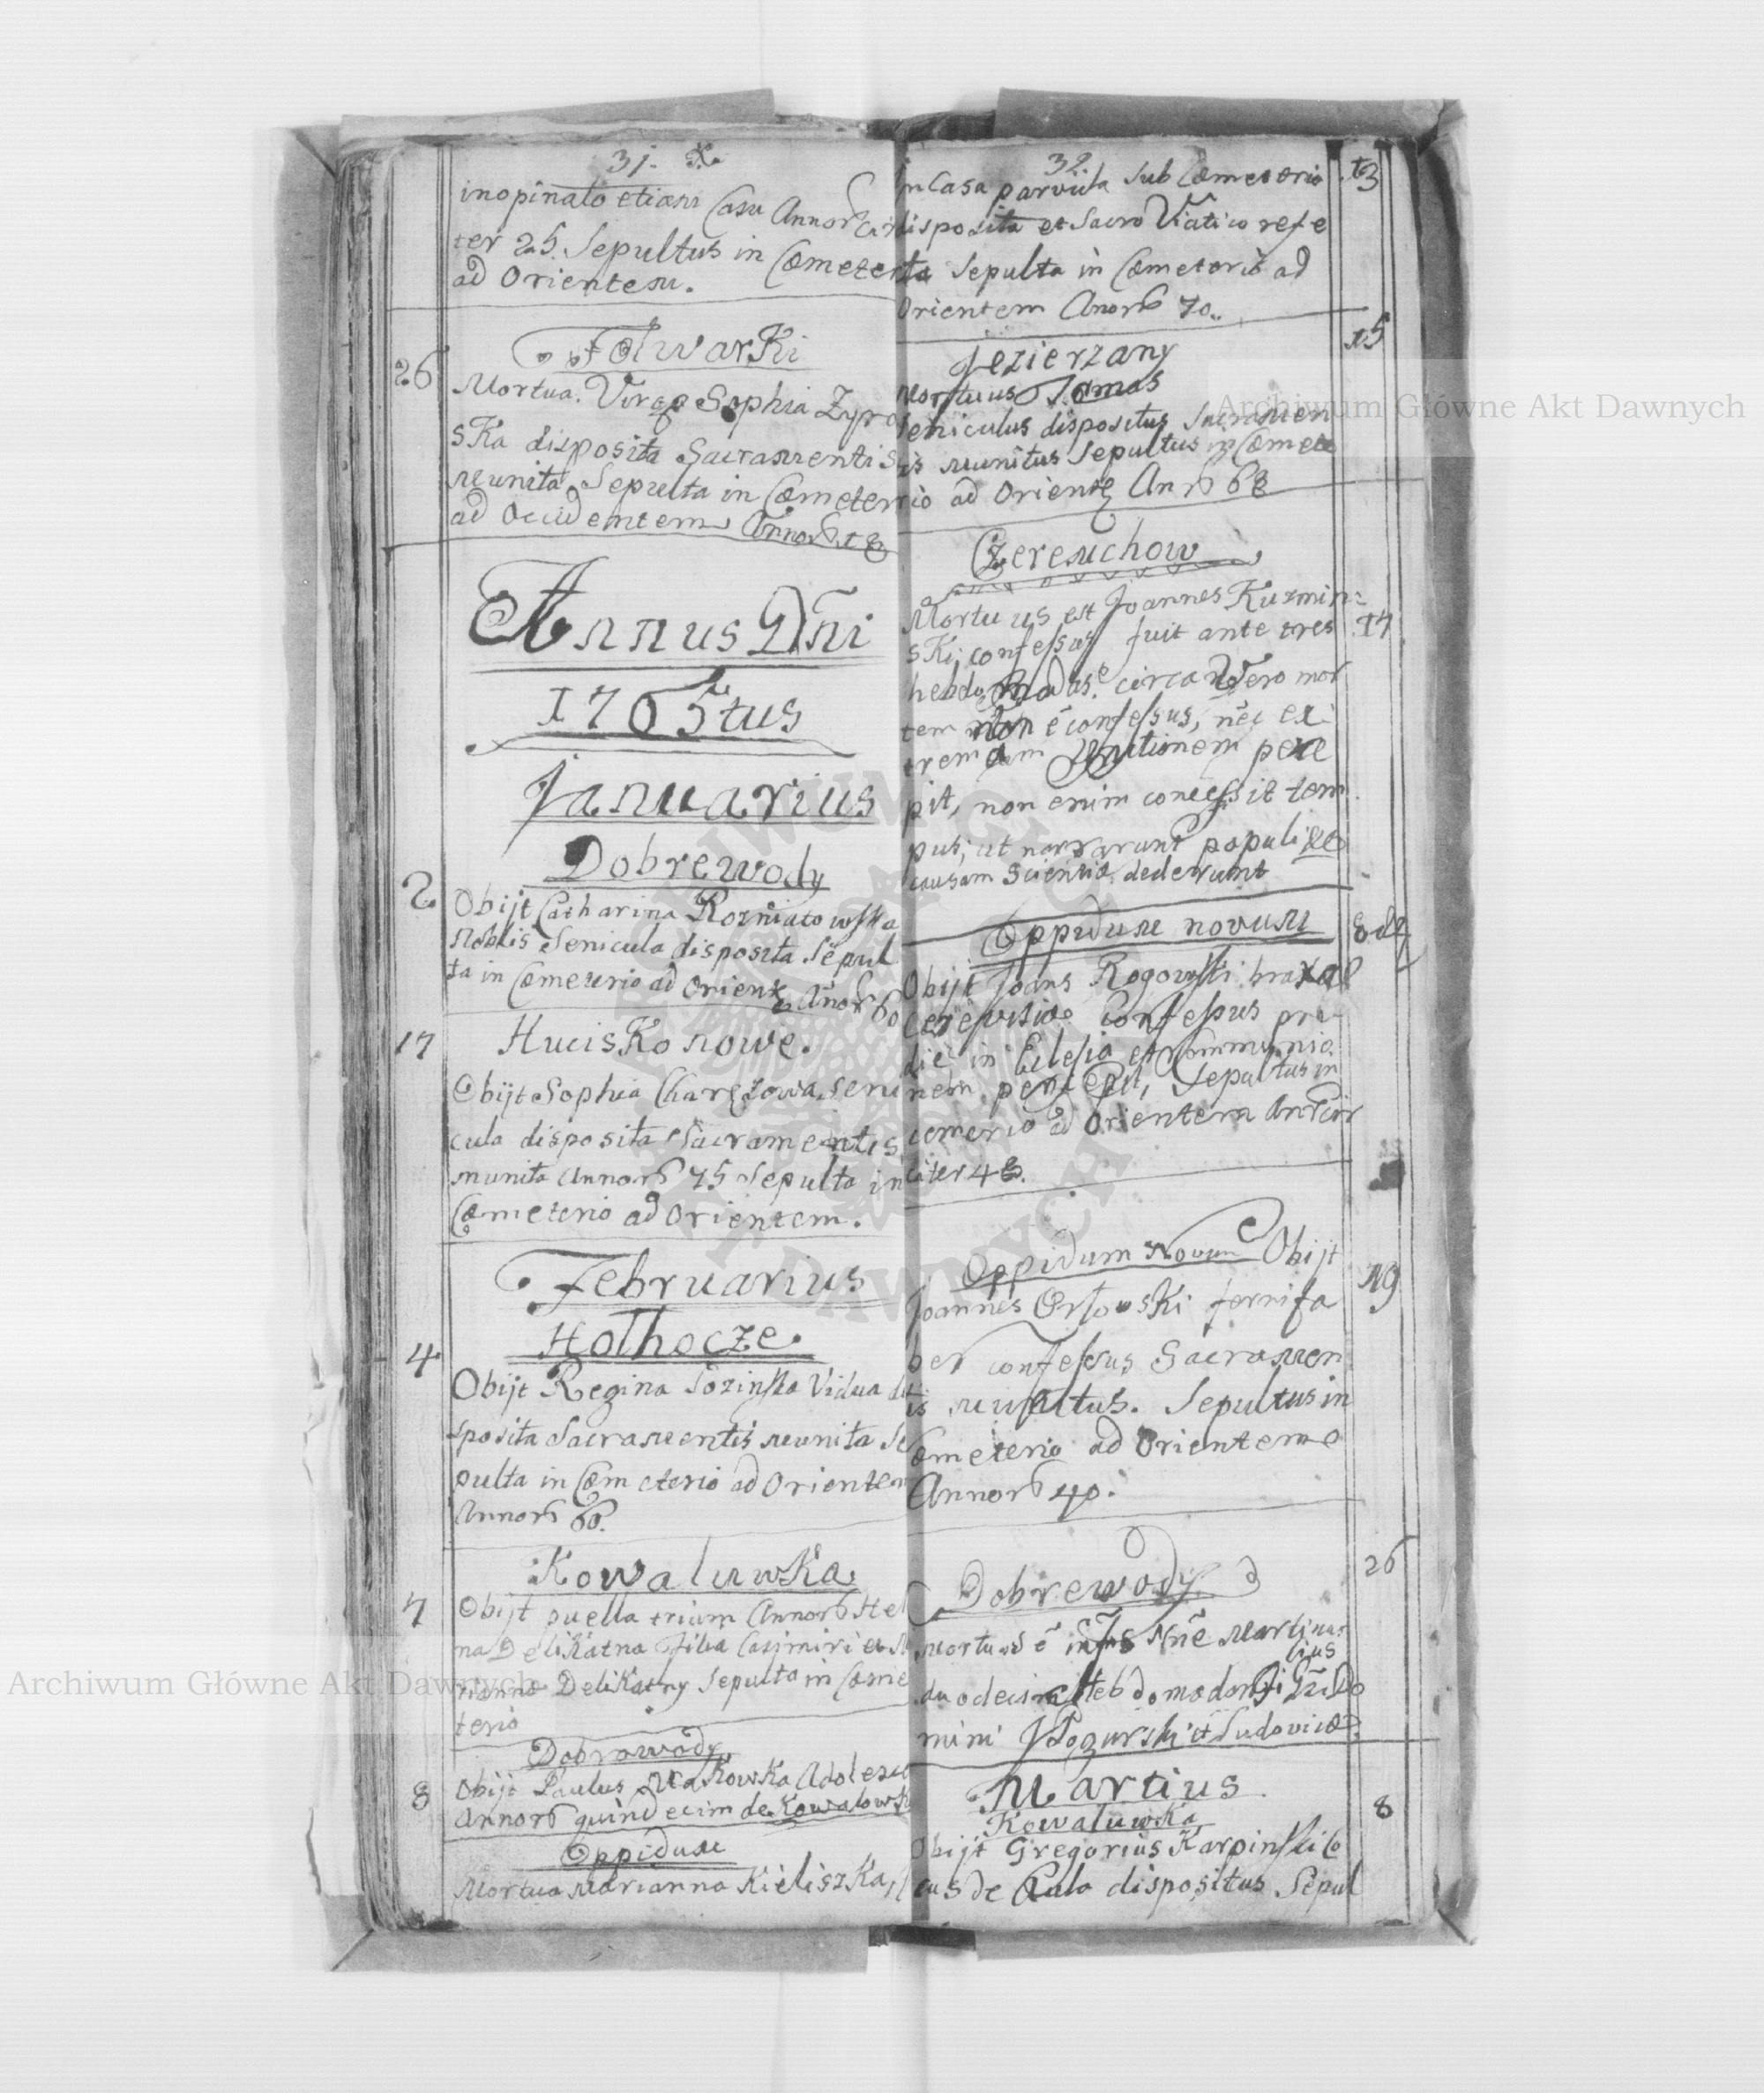 31.
inopinato etiam Casu Annor Cir
ter 25. Sepultus in Cœmeterio
ad Orientem.
Folwarki
26
Mortua Virgo Sophia Zyro
ska disposita Sacramentis
munita, Sepulta in Cœmeterio
ad Occidentem Annor 18
Annus Dni
1765tus
Januarius
Dobrewody
2
Obijt Catharina Rozniatowska
Noblis Senicula disposita Sepul
ta in Cœmeterio ad Orientē Anor 60
17
Hucisko nowe.
Obijt Sophia Charęzowa, Seni
cula disposita Sacramentis
munita Annor 75 Sepulta in
Cœmeterio ad Orientem.
Februarius
Hothocze
4
Obijt Regina Łozinska Vidua di
sposita Sacramentis munita Se
pulta in Cœmeterio ad Orientem
Annor 60.
Kowaluwka
7
Obijt puella trium Annor Hel
na Delikatna Filia Casimiri et M
rianna Delikatny Sepulta in Cœme
terio
Dobrowody
8
Obijt Paulus Adolesce
Annor quindecim de Kowalowk
Oppidum
Mortua Marianna Kieliszka,
32
in Casa parvula sub Cœmeterio
13
disposita et Sacro Viatico refe
cta Sepulta in Cœmeterio ad
Orientem Anor 70.
15
Jezierzany
Mortuus Tomas
Seniculus dispositus Sacramen
tis munitus Sepultus in Cœmete
rio ad Orientē An 68
Czeremchow
Mortuus est Joannes Kuzmin:
17
ski, confessus fuit ante tres
hebdomadas. circa Vero mor
tem non ē confessus, nec ex
tremam Unctionem perce
pit, non enim concessit tem
pus, ut narrarunt populi et
causam Scientiæ dederunt
Oppidum novum
Eode
Obijt Joans Rogowski braxat
Cerevisiæ Confessus pri
die in Eclesia et Communio
nem percepit, Sepultus in
cemerio ad Orientem An Cir
citer 48.
Oppidum Novum Obijt
19
Joannes Orłowski ferrifa
ber confessus Sacramen
tis munitus. Sepultus in
Cœmeterio ad Orientem
Annor 40.
26
Dobrewody
Mortuus ē infns Nnē Martinus
filius
duodecim Hebdomadon
mini et Ludovicæ.
Martius
Kowaluwka
8
Obijt Gregorius Karpinski Co
cus de Aula dispositus Sepul
Archiwum Główne Akt Dawnych
Archiwum Główne Akt Dawnych